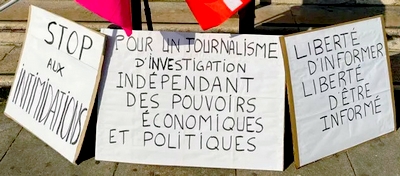 STOP
AUX
INTIMIDATIONS
POUR UN JOURNALISME
D'INVESTIGATION
INDÉPENDANT
DES POUVOIRS
ÉCONOMIQUES
ET POLITIQUES
LIBERTÉ
D'INFORMER
LIBERTÉ
D'ÊTRE
INFORMÉ